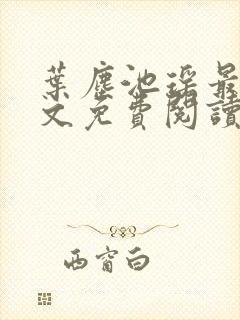 葉塵池瑤最
文免費閱讀
西窗白